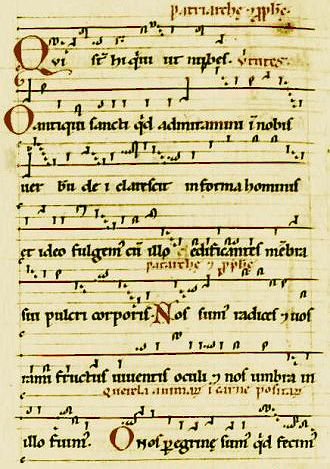 patriarchę ⁊ ꝓphę.
Qui st̄ hi qͥ ut nubes. Virtutes.
O antiqui sancti qͥd admiramini ī nobis
uer bū de i clarescit in forma hominis
et ideo fulgemꝰ cū illo edificantes mēbra
patriarchę ⁊ ꝓphę
sui pulcri corporis. Nos sumꝰ radices ⁊ uos
rami fructus uiuentis oculi ⁊ nos umbra in
Querela animaꝝ ī carne positaꝝ
illo fuimꝰ. O nos peregrinę sumꝰ qͥd fecimꝰ